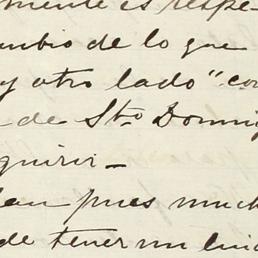 mente es respe-
mbio de lo que
y otro lado" con
de Sto Doming
quirir_
pues much
de tener un